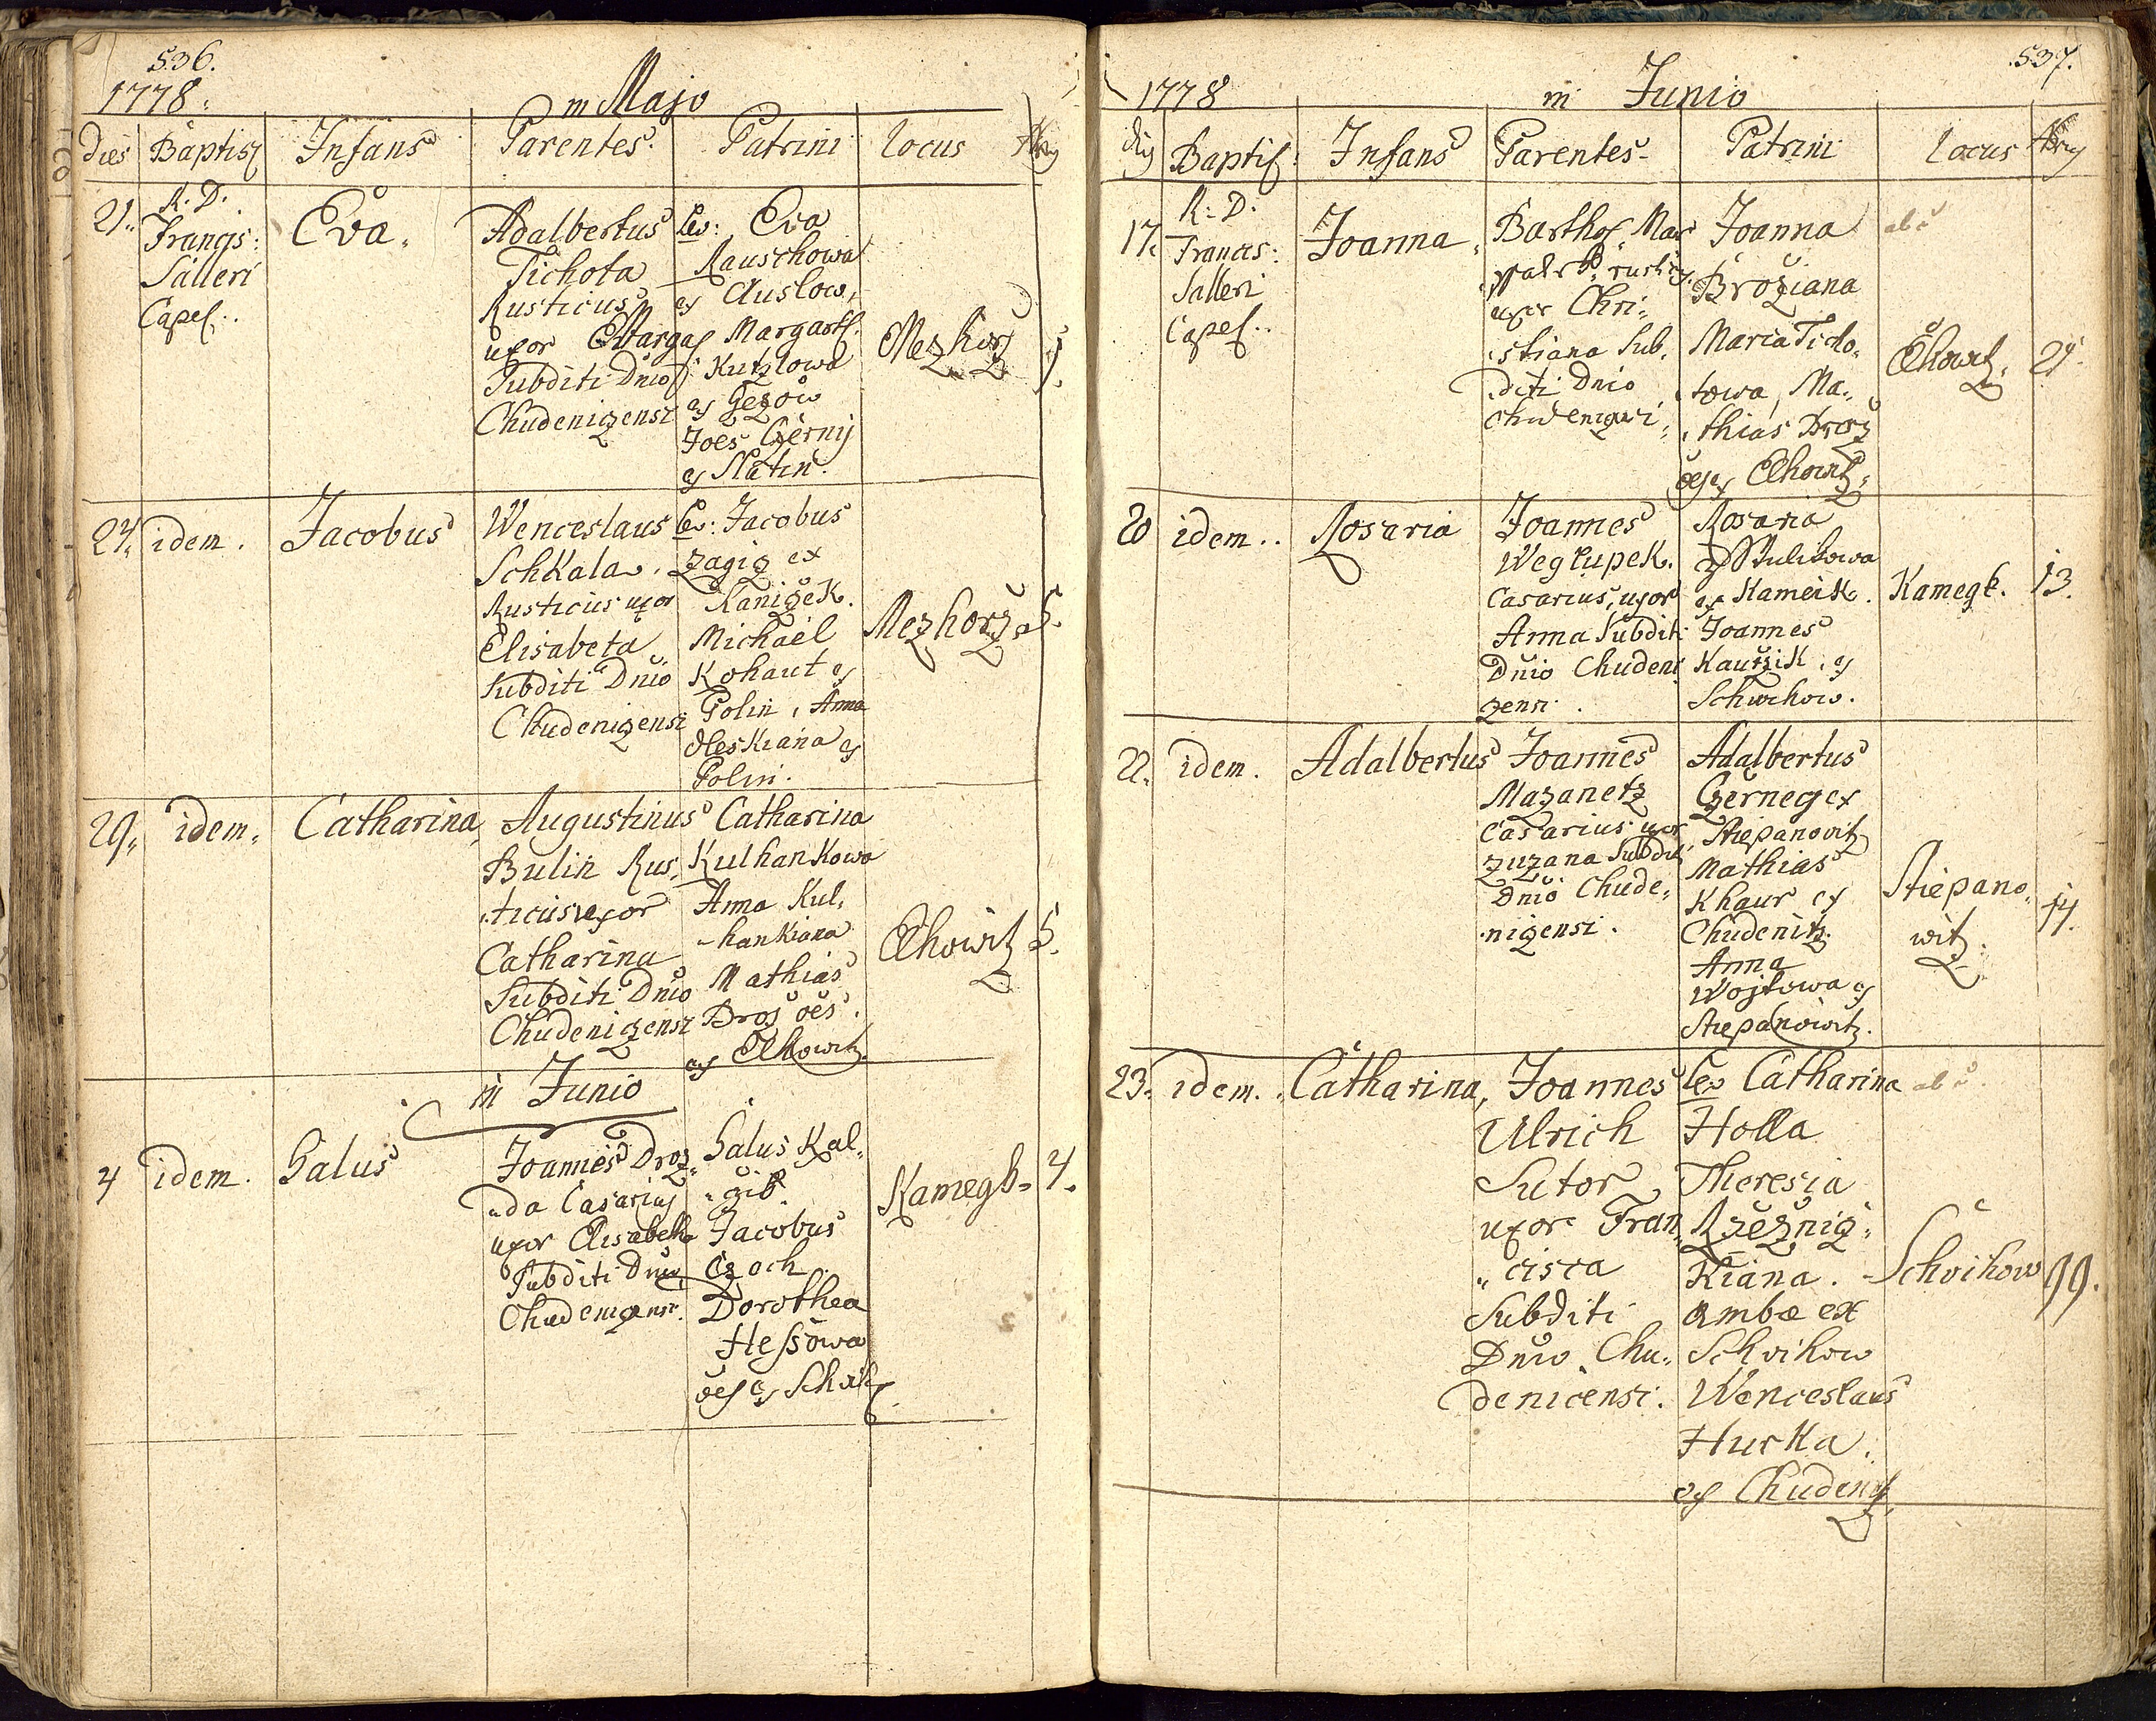 536.
1778.
in Majo
Dies Baptis Infans Parentes. Patrini Locus
21.
R. D.
Francis:
Salleri
Capel..
Eva.
Adalbertus
Tichota
Rusticus
uxor Marga
Subditi Dnio
Chudenizensi
Lev: Eva
Rauschowa
ex Auslow,
Margareth.
Kutzlowa
ex Gezow
Joes Czerny
ex Slatin.
Mezhorz
24. idem. Jacobus
Wenceslaus
Schkala.
Rusticus uxor
Elisabeta
Subditi Dnio
Chudenizensi
Lev: Jacobus
Zagiz ex
Kanizek.
Michael
Kohaut ex
Polin, Anna
Oleskiana ex
Polin.
Mezhorz. 5.
29. idem. Catharina,
Augustinus
Bulin Rus,
ticus uxor
Catharina
Subditi Dnio
Chudenizensi
Catharina
Kulhankowa
Anna Kul,
hankiana
Mathias
Broz oes.
ex Elhowitz
Elhowitz 5.
in Junio
4 idem. Galus
Joannes Droz
da Casarius
uxor Elisabetha
Subditi Dnio
Chudenizensi.
Galus Kal,
Jacobus
Czoch
Dorothea
Hessowa
oes ex Schvih
Kamegk. 4.
537.
1778
in Junio
Baptis: Infans Parentes Patrini Locus
17.
R. D.
Francis:
Salleri
Capel..
Joanna.
Barthol. Mar
rustic,
uxor Chri:
stiana Sub,
diti Dnio
Chudenizensi
Joanna
Broziana
Maria Ticho,
towa, Ma,
thias Broz
oes ex Elhowitz.
Elhowitz. 21.
20 idem.. Rosaria
Joannes
Weglupek.
Casarius, uxor
Anna Subditi
Dnio Chudeni
zensi.
Rosaria
ex Kameik.
Joannes
Kautzik, ex
Schwihow.
Kamegk. 13.
22. idem. Adalbertus
Joannes
Mazanetz
Casarius uxor
Zuzana Subditi
Dnio Chude,
nizensi.
Adalbertus
Czerneg ex
Stiepanowitz
Mathias
Khaur ex
Chudenitz.
Anna
Wojtowa ex
Stiepanowitz.
Stiepano,
witz. 14.
23. idem. Catharina,
Joannes
Ulrich
Sutor
uxor Fran,
cisca
Subditi
Dnio Chu,
denicensi.
Lev Catharina
Holla
Theresia
Rzeznig,
kiana.
ambae ex
Schvihow
Wenceslaus
Hurka.
ex Chudenitz.
Schvihow 99.